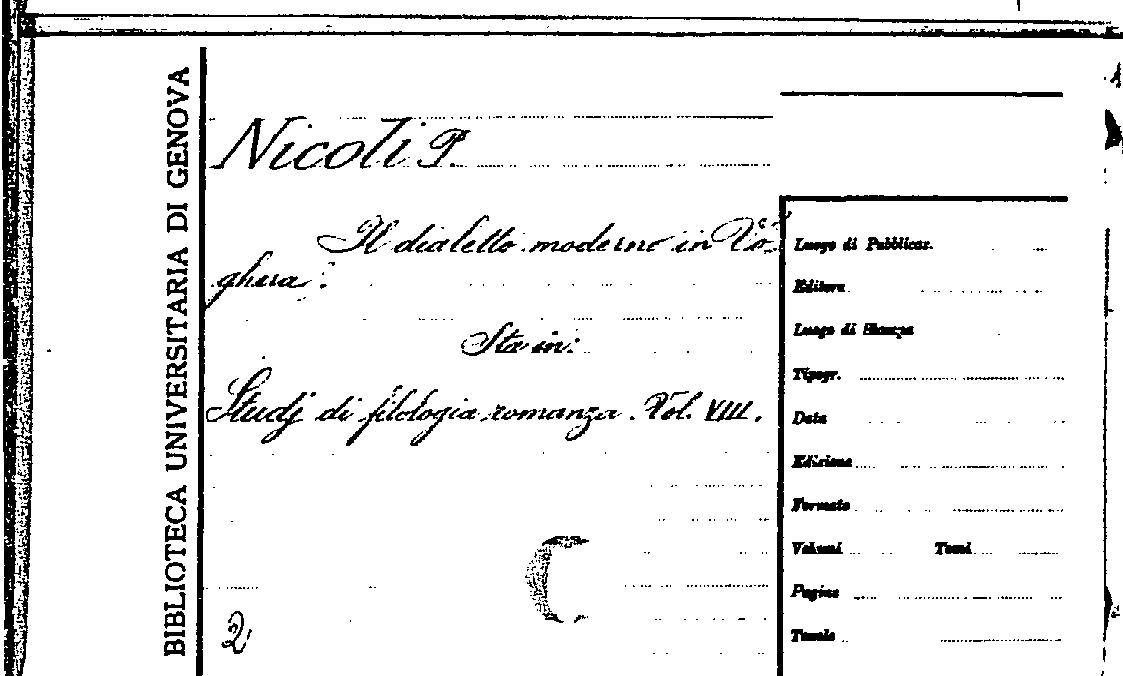 BIBLIOTECA UNIVERSITARIA DI GENOVA
Nicoli P.
Il dialetto moderno in Vo-
ghera.
Sta in:
Studj di filologia romanza. Vol. VIII.
2
Luogo di Pubblicaz.
Editore
Luogo di Stampa
Tipogr.
Data
Edizione
Formato
Volumi Tomi
Pagine
Tavole